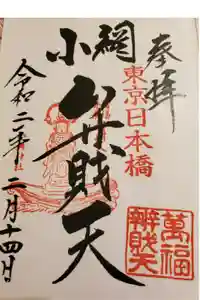 奉拝
東京日本橋
小網
弁財天
令和二年二月十四日
萬福
辨財天